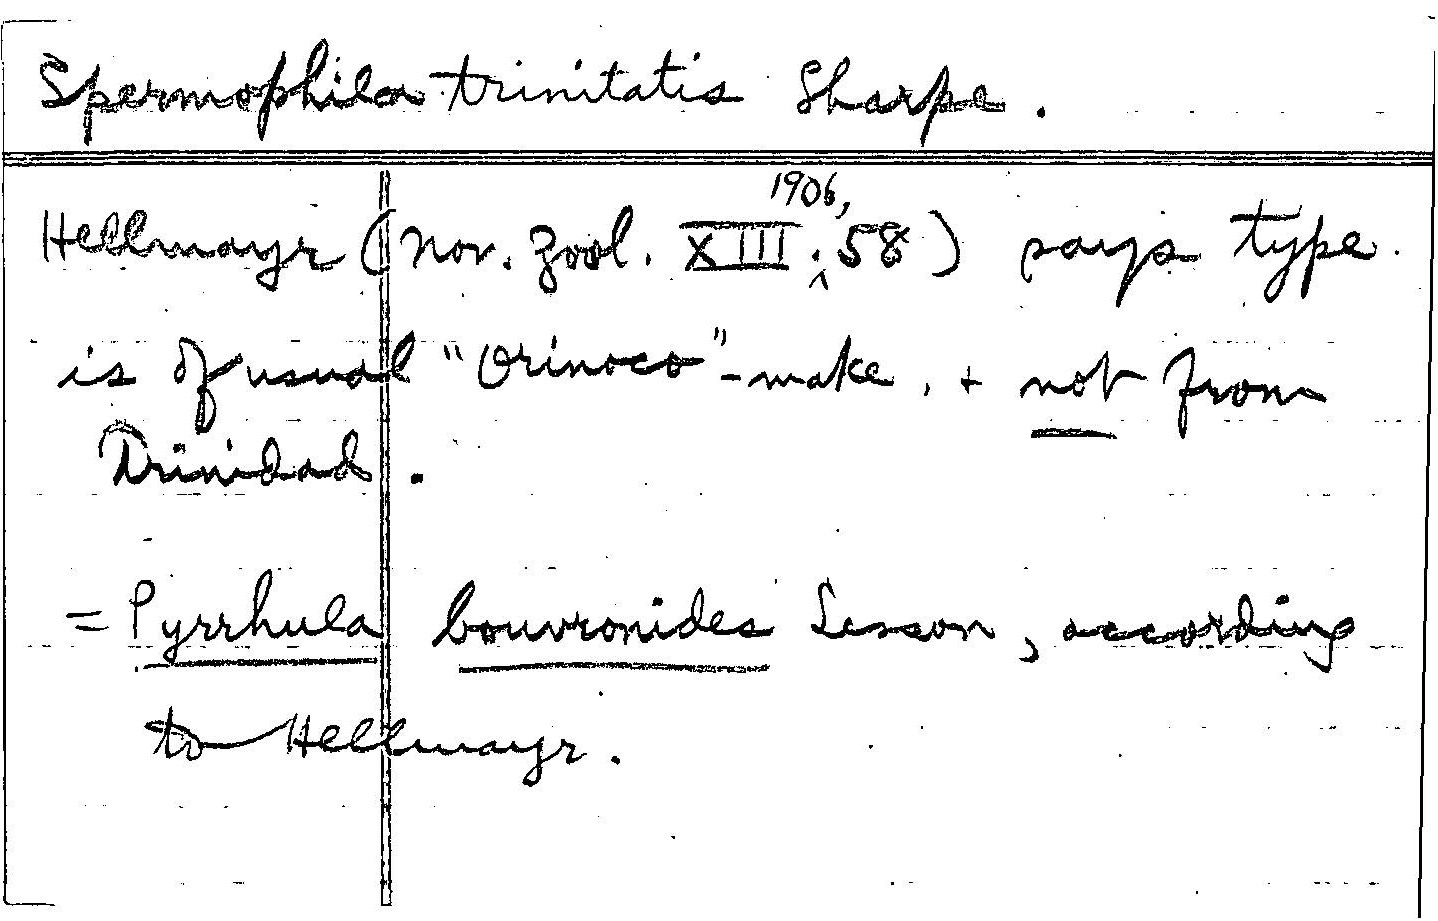 Spermophila trinitatis Sharpe.
Hellmayr (Nov. Zool. XIII, 1906, 58) says type
is of usual "Orinoco"-make, + not from
Trinidad.
= Pyrrhula bouvronides Lesson, according
to Hellmayr.